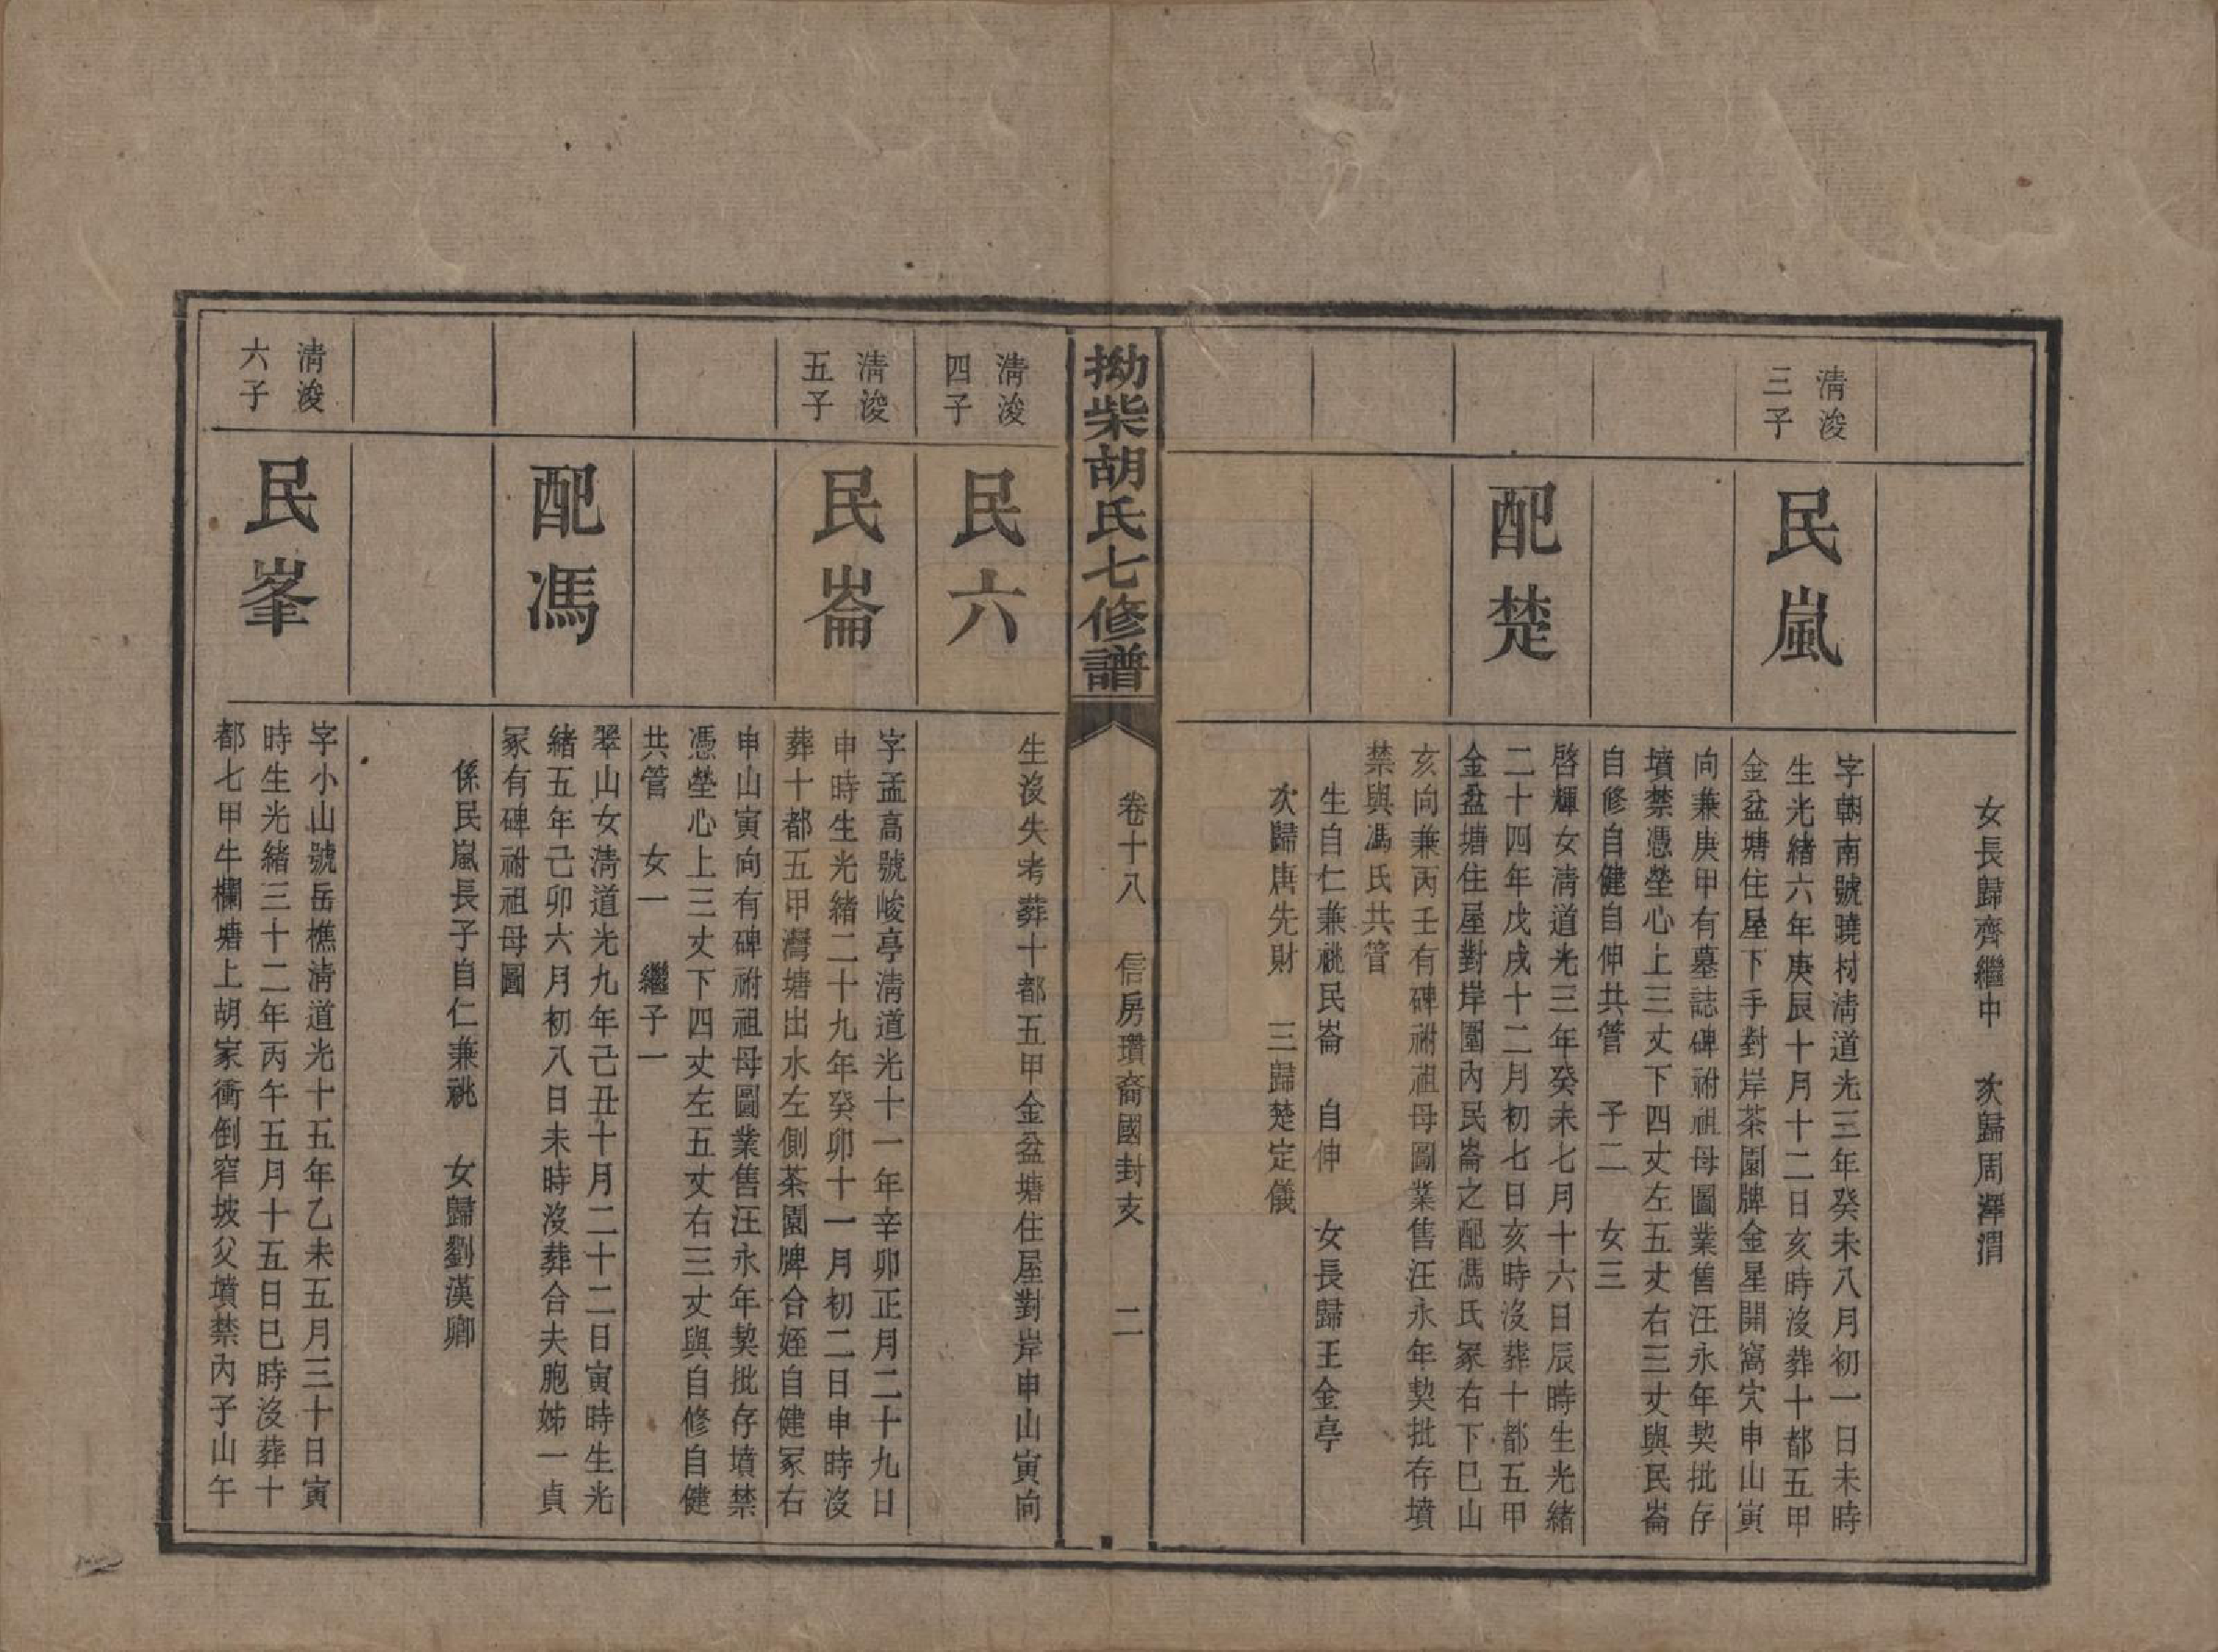 女長歸齊繼中　次歸周澤渭
清浚
三子
民嵐
字朝南號曉村清道光三年癸未八月初一日未時
生光緒六年庚辰十月十二日亥時沒葬十都五甲
金盆塘住屋下手對岸茶園牌金星開窩穴申山寅
向兼庚甲有墓誌碑祔祖母圖業售汪永年契批存
墳禁憑塋心上三丈下四丈左五丈右三丈與民崙
自修自健自伸共管　子二　女三
配楚
啓輝女清道光三年癸未七月十六日辰時生光緒
二十四年戊戌十二月初七日亥時沒葬十都五甲
金盆塘住屋對岸圍內民崙之配馮氏冢右下巳山
亥向兼丙壬有碑祔祖母圖業售汪永年契批存墳
禁與馮氏共管
生自仁兼祧民崙　自伸　女長歸王金亭
次歸唐先財　三歸楚定儀
拗柴胡氏七修譜
卷十八　信房瓚裔國封支　二
清浚
四子
民六
生沒失考葬十都五甲金盆塘住屋對岸申山寅向
清浚
五子
民崙
字孟高號峻亭清道光十一年辛卯正月二十九日
申時生光緒二十九年癸卯十一月初二日申時沒
葬十都五甲灣塘出水左側茶園牌合姪自健冢右
申山寅向有碑祔祖母圖業售汪永年契批存墳禁
憑塋心上三丈下四丈左五丈右三丈與自修自健
共管　女一　繼子一
配馮
翠山女清道光九年己丑十月二十二日寅時生光
緒五年己卯六月初八日未時沒葬合夫胞姊一貞
冢有碑祔祖母圖
係民嵐長子自仁兼祧　女歸劉漢卿
清浚
六子
民峯
字小山號岳樵清道光十五年乙未五月三十日寅
時生光緒三十二年丙午五月十五日巳時沒葬十
都七甲牛欄塘上胡家衝倒窄坡父墳禁內子山午